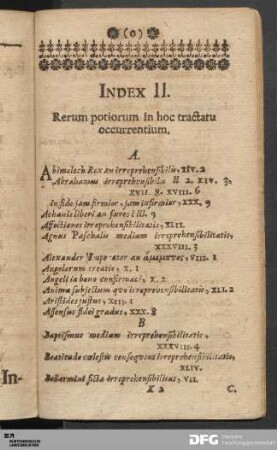 (o)
INDEX II.
Rerum potiorum in hoc tractatu
occurrentium.
A.
Abimelech Rex an irreprehensibilis, XIV. 2
Abrahamus irreprehensibilis II 2. XIV. 3,
XVII. 8. XVIII. 6
in fide jam firmior, jam infirmior, XXX. 9
Achanis liberi an fures? III. 9
Affectiones irreprehensibilitatis, XLII.
Agnus Paschalis medium irreprehensibilitatis,
XXXVIII. 3
Alexander Imperator an ἀμώμητος, VIII. 1
Angelorum creatio, X. 1
Angeli in bono confirmati, X. 2
Anima subjectum quo irreprehensibilitatis, XLI. 2
Aristides justus, XIII. 1
Assensus fidei gradus, XXX. 8
B
Baptismus medium irreprehensibilitatis,
XXXVIII. 4
Beatitudo cœlestis consequens irreprehensibilitatis,
XLIV.
Bellarmini ficta irreprehensibilitas, VII.
X 2 C.
In-
DFG Deutsche
Forschungsgemeinschaft